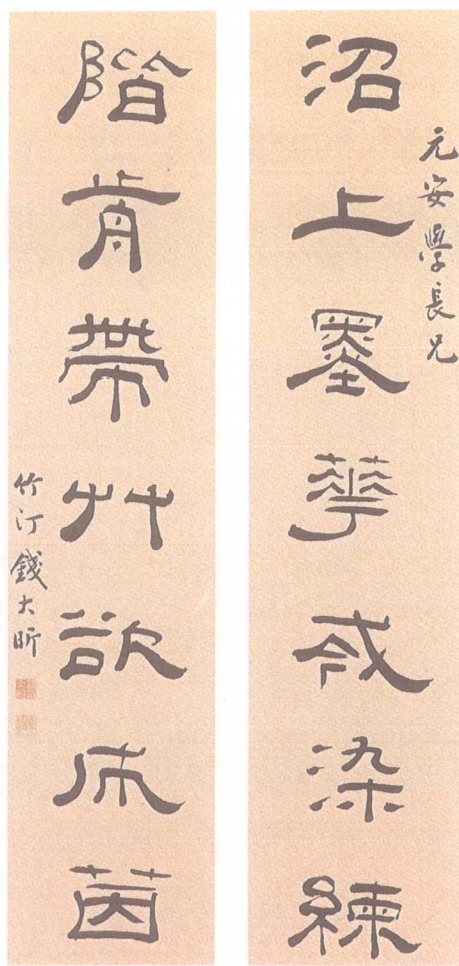 沼上墨華染練
元安學長兄
階歬帶艸欲茵
竹汀錢大昕